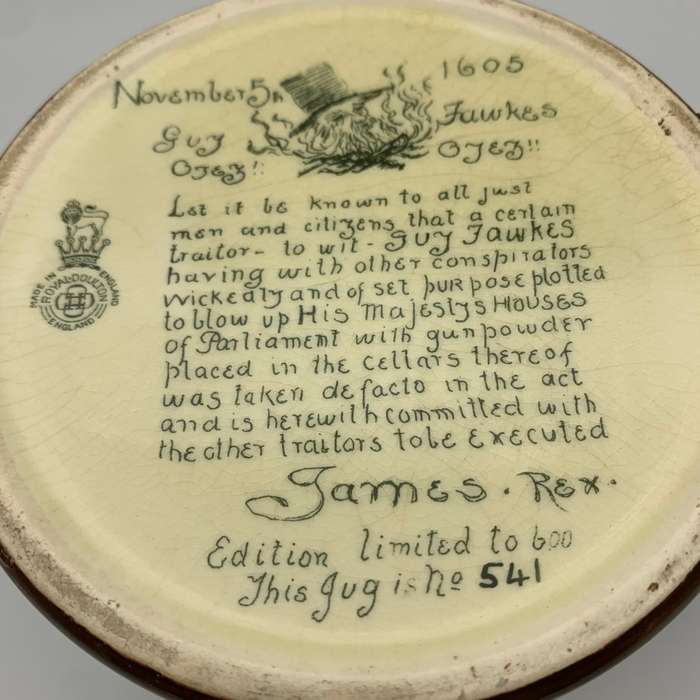 November 5th 1605
Guy Fawkes
OYEZ!! OYEZ!!
Let it be known to all just
men and citizens that a certain
traitor- to wit- Guy Fawkes
having with other conspirators
wickedly and of set purpose plotted
to blow up His Majestys Houses
of Parliament with gunpowder
placed in the cellars thereof
was taken de facto in the act
and is herewith committed with
the other traitors to be executed
James. Rex.
Edition limited to 600
This Jug is No 541
MADE IN ENGLAND
ROYAL DOULTON
ENGLAND